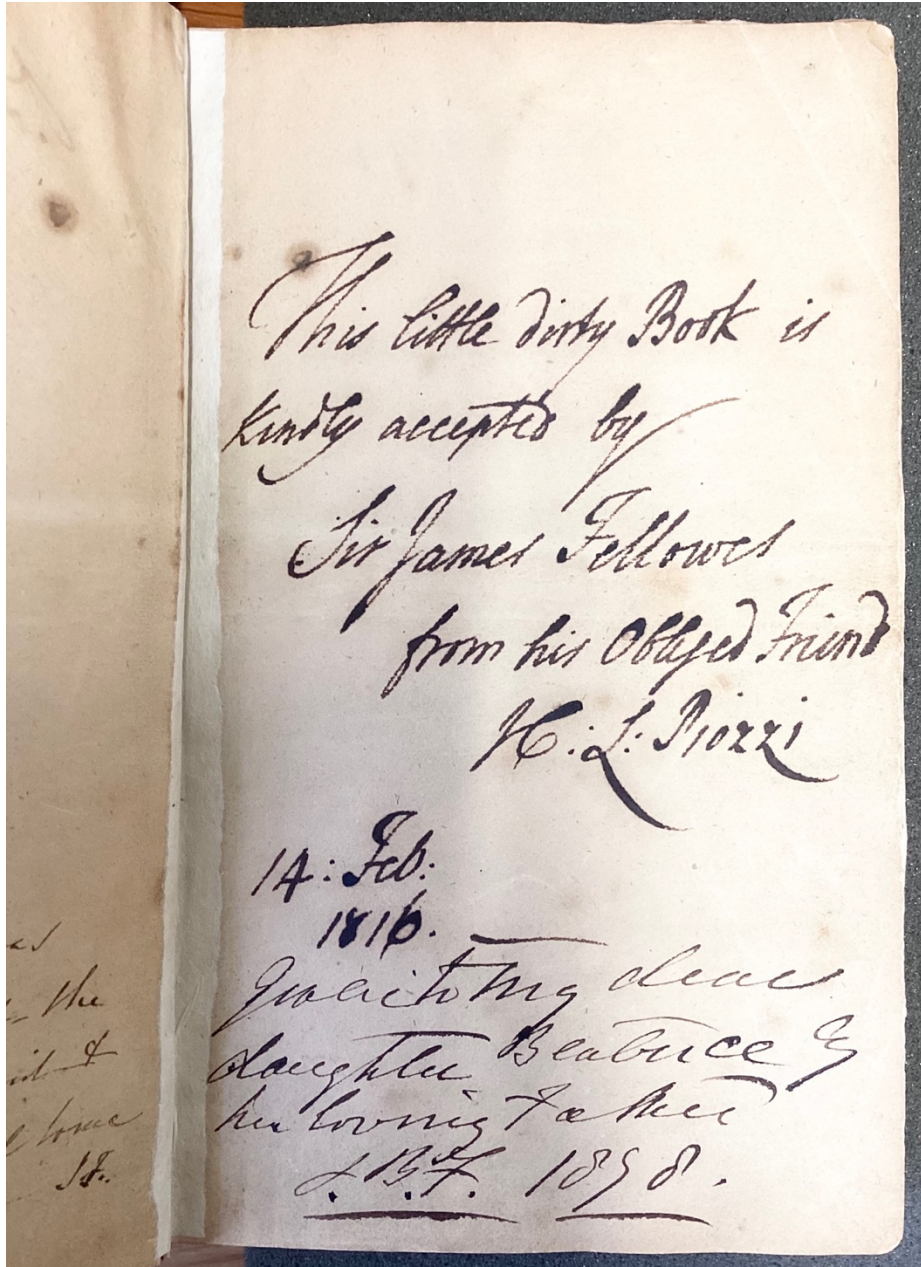 as
the
&
some
J.F.
This little dirty Book is
kindly accepted by
Sir James Fellowes
from his Obliged Friend
H: L: Piozzi
14: Feb:
1816.
Given to my dear
daughter Beatrice by
her loving Father
J. B. F. 1898.